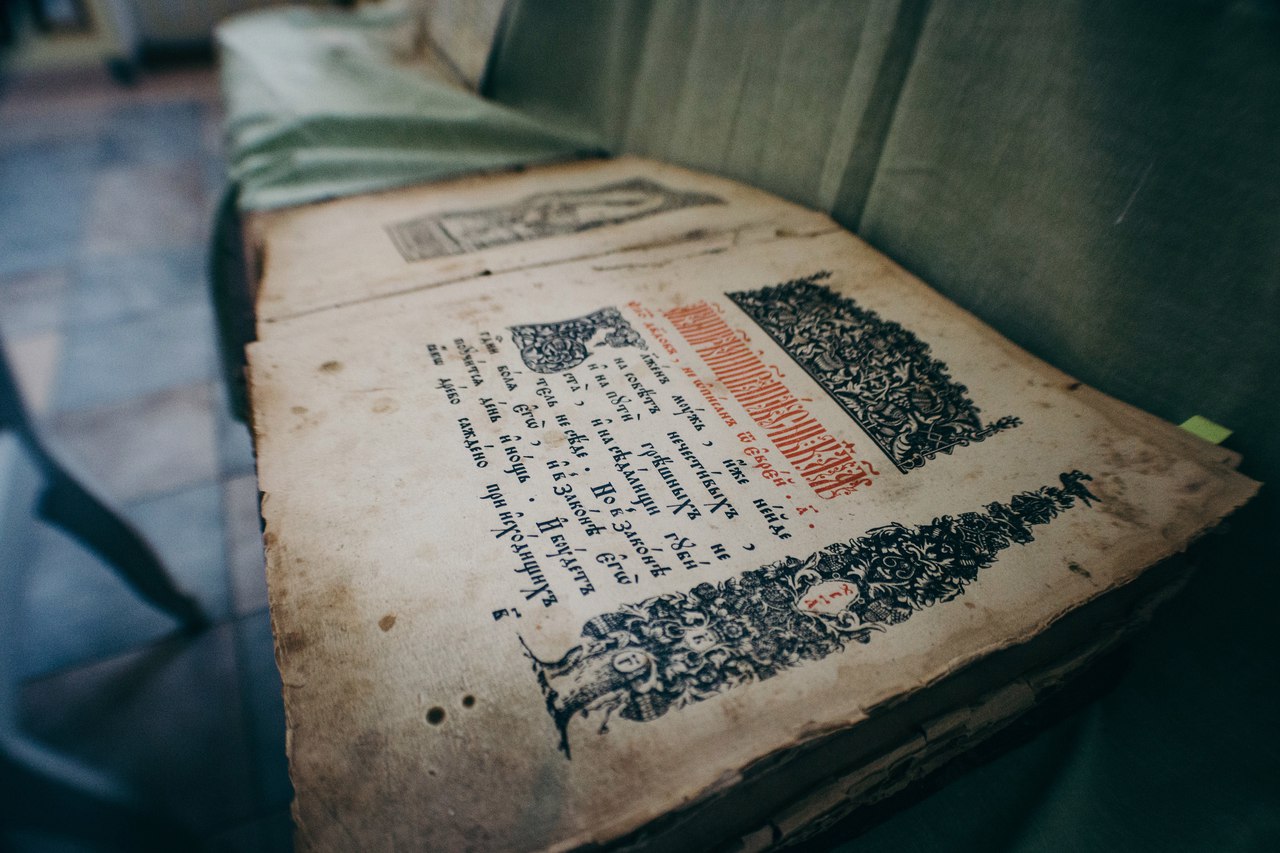 не ѡ҆пи́санъ ѿ є҆вре́й . а҃ .
Бл҃же́нъ мꙋ́жъ , и҆́же не и҆́де
на совѣ́тъ нечести́выхъ ,
и҆ на пꙋтѝ грѣ́шныхъ не
ста̀ , и҆ на сѣда́лищи гꙋби́
тель не сѣ́де . Но в зако́нѣ
гд҇ни вола є҆гѡ̀ , и҆ в зако́нѣ є҆гѡ̀
поꙋчи́тсѧ де́нь и҆ но́щь . И҆ бꙋ́детъ
ꙗ҆́кѡ дре́во сажде́но при и҆схо́дищихъ